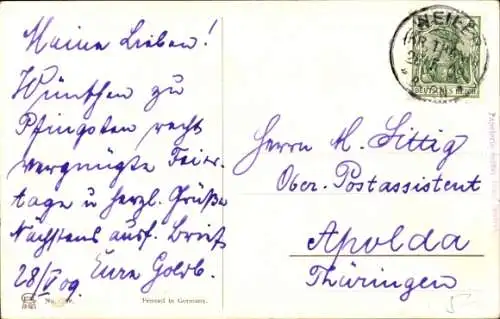 Meine Lieben!
Wünschen zu
Pfingsten recht
vergnügte Feier-
tage u herzl. Grüße
Nächstens ausf. Brief
28/V 09. Eure Goldb.
No.
Printed in Germany.
DEUTSCHES REICH
Herrn M. Sittig
Ober-Postassistent
Apolda
Thüringen
5